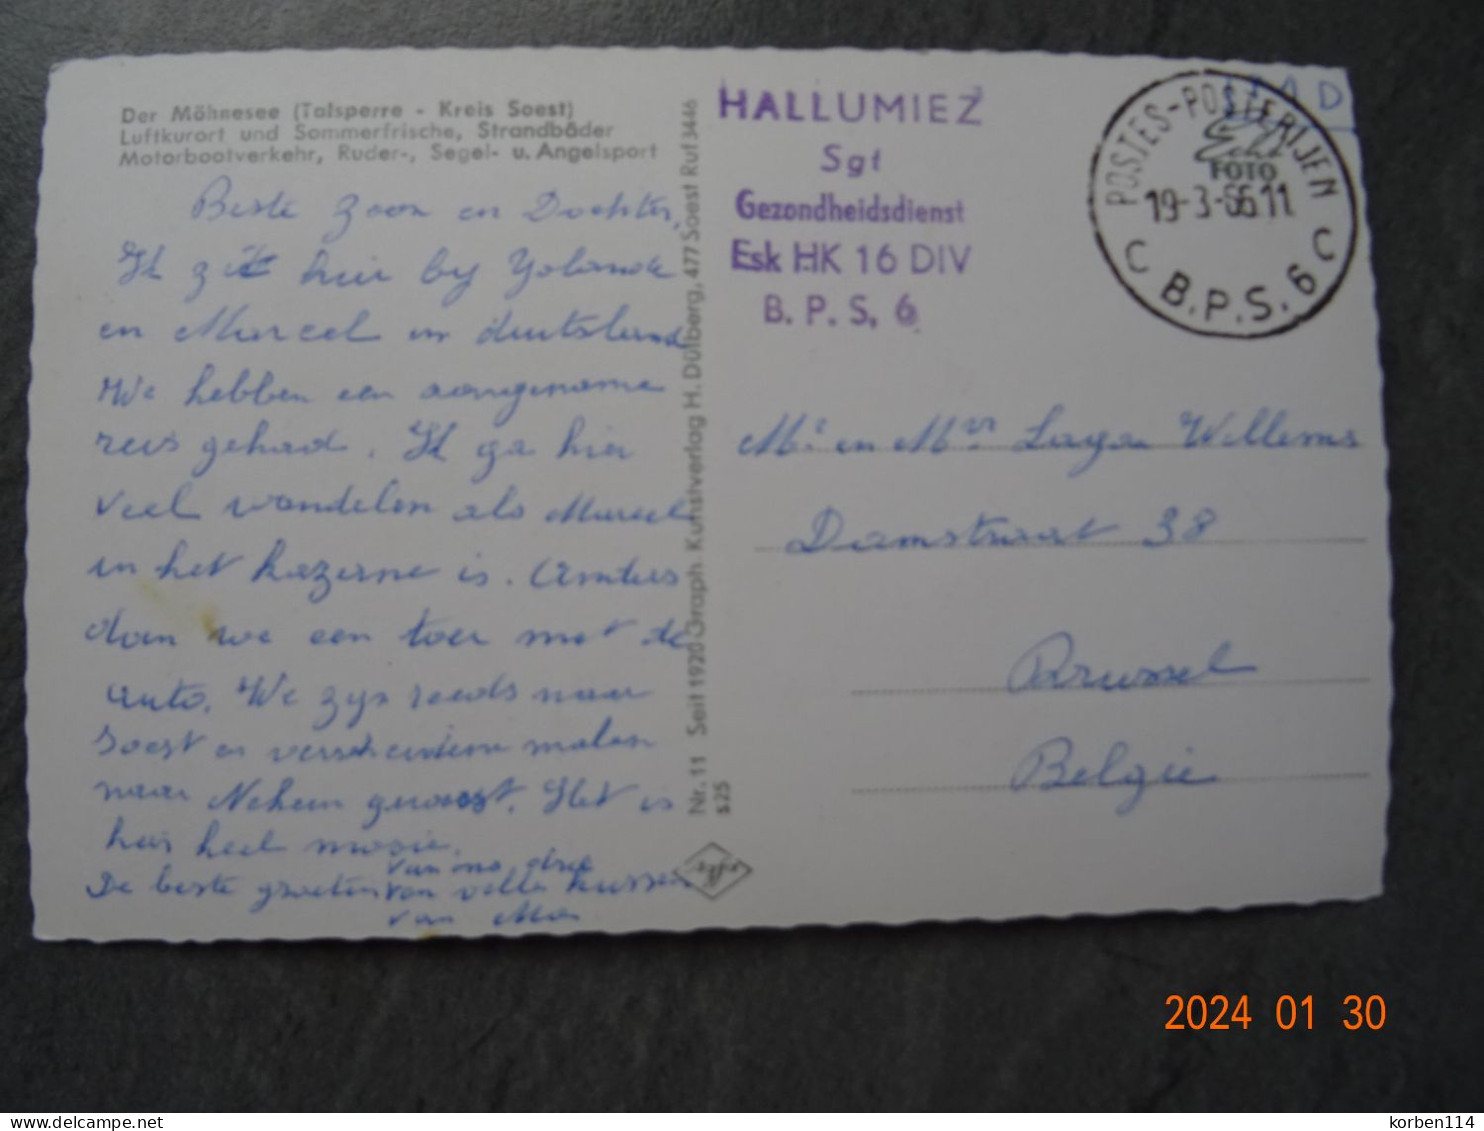 Der Möhnesee (Talsperre - Kreis Soest)
Luftkurort und Sommerfrische, Strandbäder
Motorbootverkehr, Ruder-, Segel- u. Angelsport
Beste Zoon en Dochter,
Ik zit hier by Yolande
en Marcel in duitsland
We hebben een aangename
reis gehad. Ik ga hier
veel wandelen als Marcel
in het kazerne is.
dan we een toer met de
auto. We zyn reeds naar
Soest en verscheidene malen
naar Nehem geweest. Het is
hier heel mooie.
De beste groeten van ons drie
van velle kussen
van Ma
Nr. 11 Seit 1920 Graph. Kunstverlag H. Dülberg, 477 Soest Ruf 3446
s25
HALLUMIEZ
Sgt
Gezondheidsdienst
Esk HK 16 DIV
B. P. S. 6
POSTES-POSTERIJEN
19-3-66 11
C B.P.S. 6 C
Echt
FOTO
Mr en Mvr Laga Willems
Damstraat 38
Brussel
Belgie
2024 01 30
delcampe.net
korben114